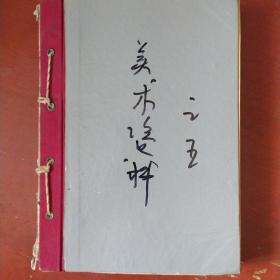 美术资料
之五